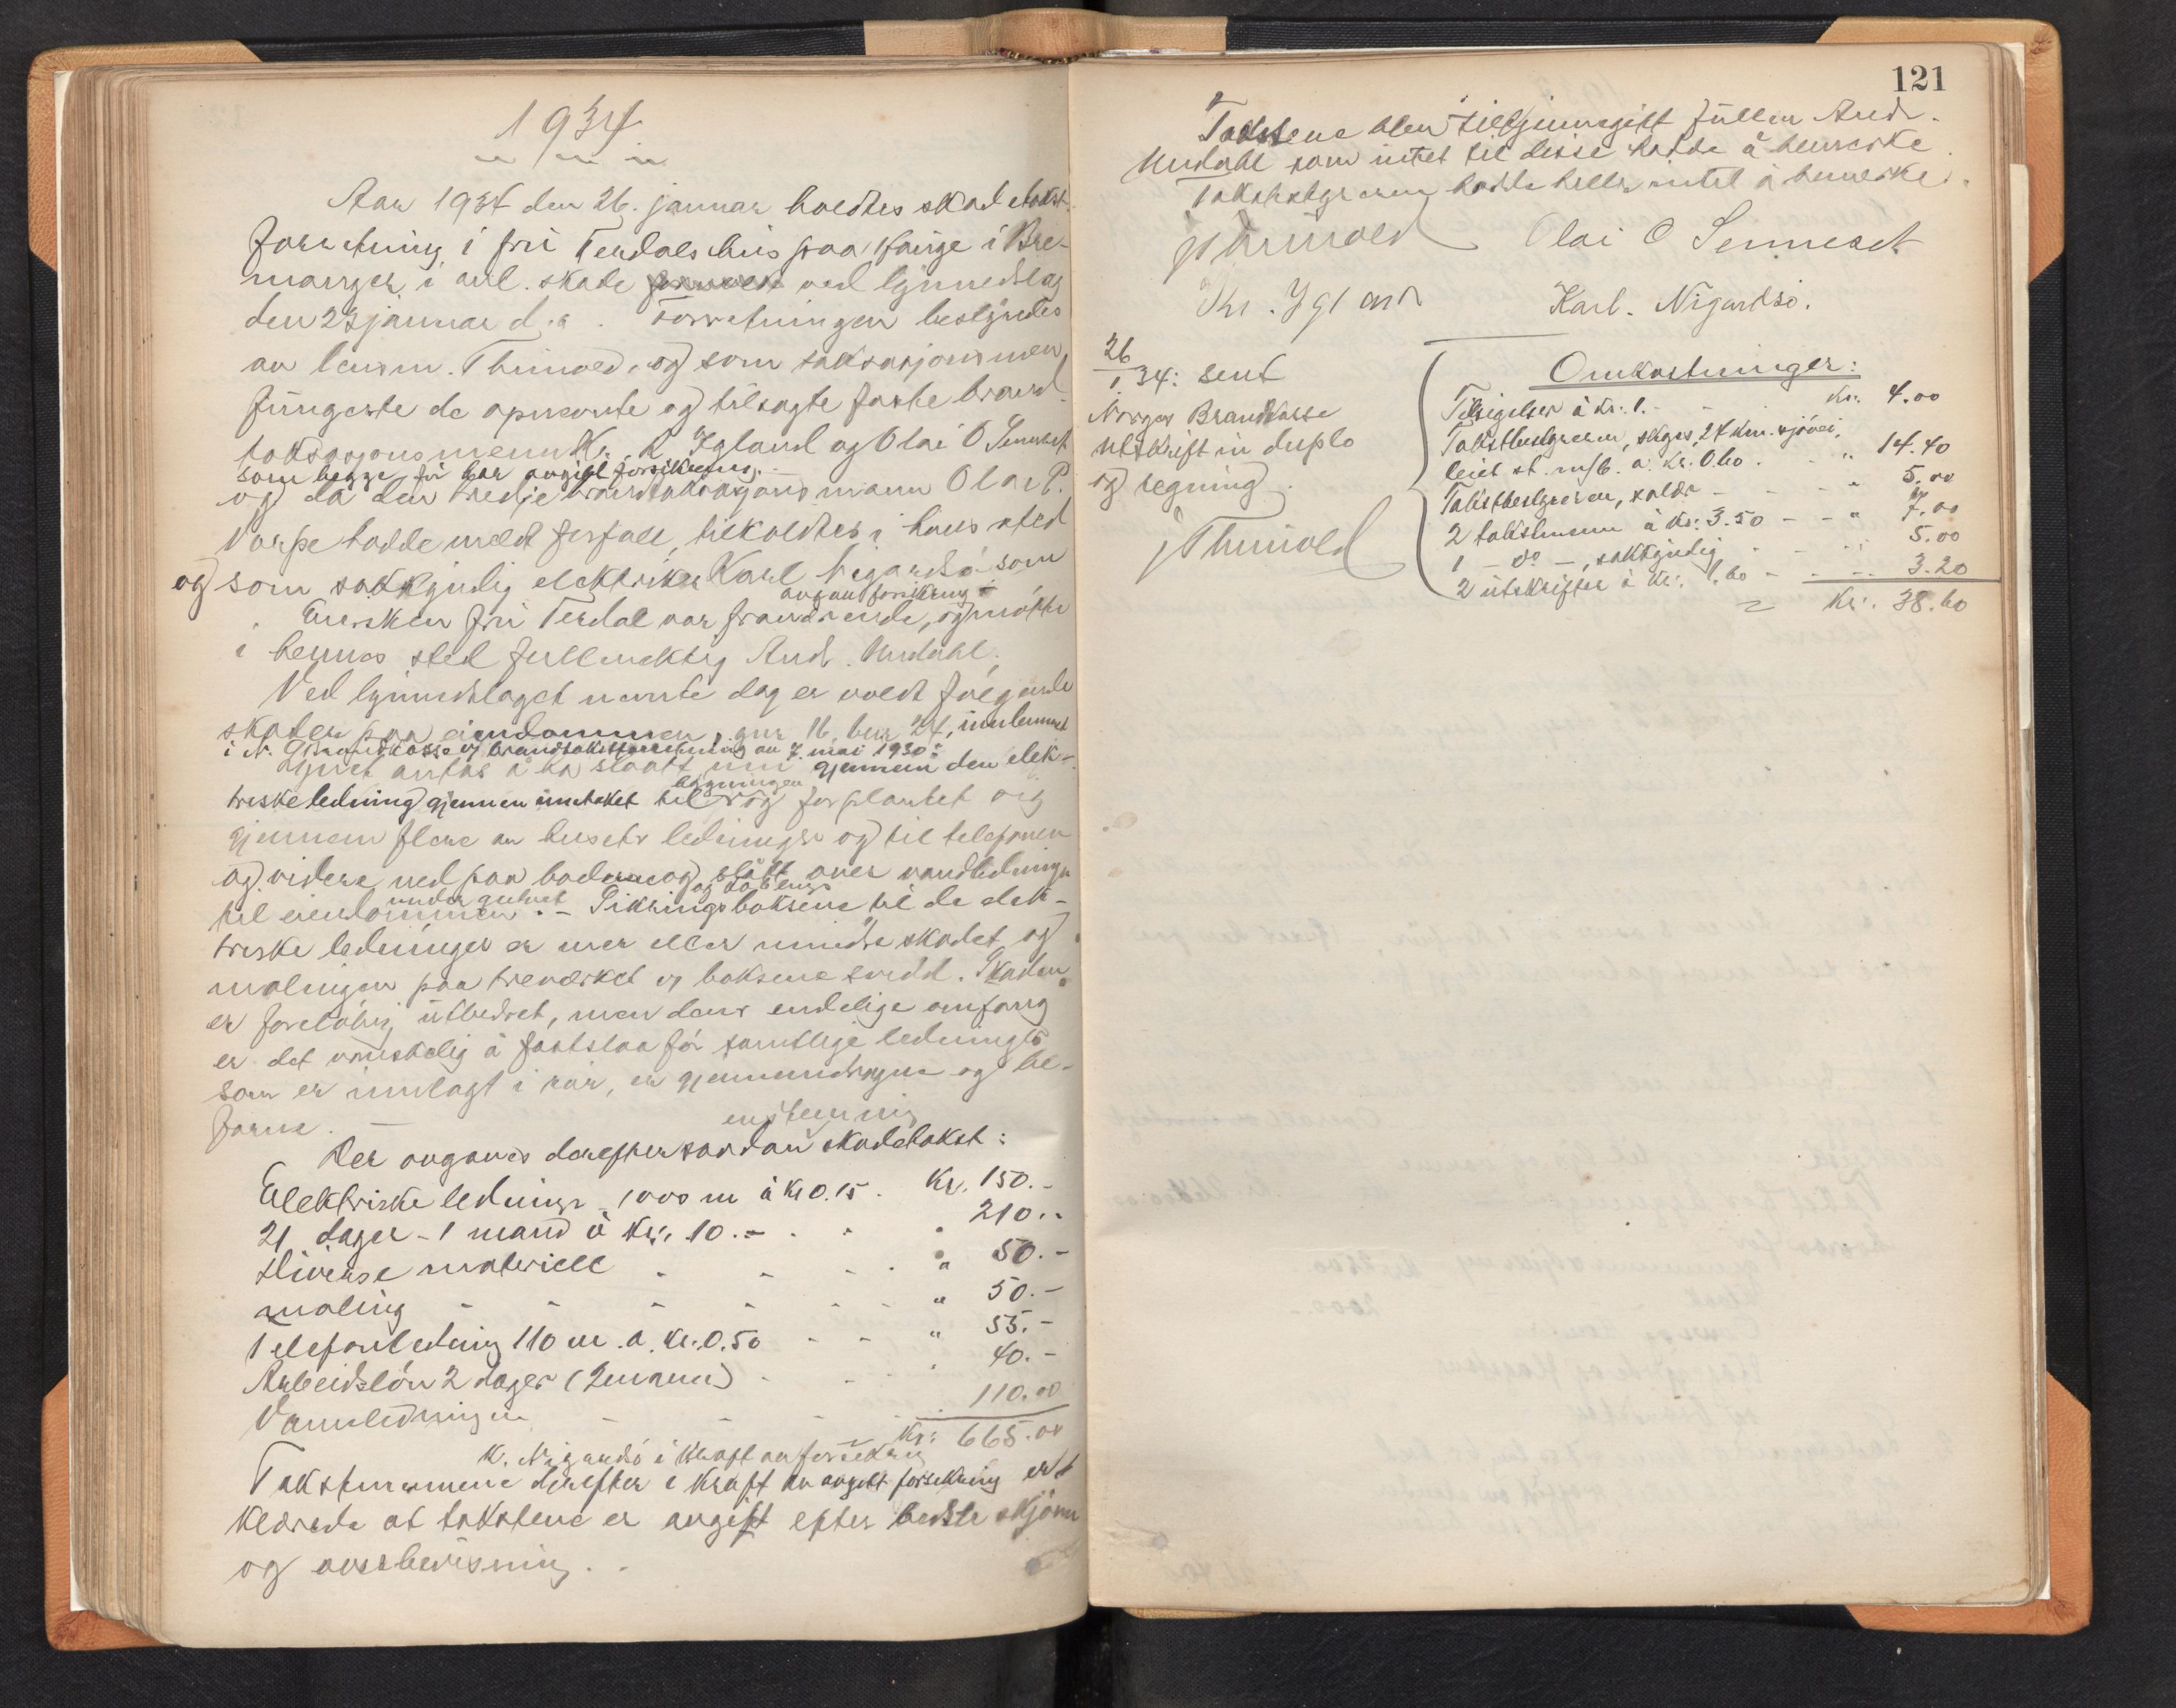 1934
Aar 1934 den 26. januar holdtes skadetakst-
forretning i fru Terdals hus paa Hauge i Bre-
manger i anl. skade ved lynnedslag
den 23 januar d.a. Forretningen bestyrtes
av lensm. Thinold, og som taksasjonsmen
fungerte de opnevnte og tilsagte faste brand-
taksasjonsmenn Kr. R. Igland og Olai O Senneset
som begge før har avgitt forsikring.
og da den tredje brandtaksasjonsmann Ola P.
Varpe hadde meldt forfall, tilkaldtes i hans sted
og som sakkyndig elektriker Karl Nigardsø som
avgav forsikring
Eiersken fru Terdal var fraværende, og møtte
i hennes sted fullmektig And. Urdahl.
Ved lynnedslaget nevnte dag er voldt følgende
skader paa eiendommen, gnr 16, bnr 24, innlemmet
i N. Brandkasse v. brandtakstforretning av 7 mai 1930:
Lynet antas å ha slaatt inn gjennem den elek-
triske ledning gjennem inntaket til bygningen og forplantet sig
gjennem flere av husets ledninger og til telefonen
og videre ned paa badet og slått over vandledningen
til eiendommen under gulvet. - Sikringsboksene og dåsene til de elek-
triske ledninger er mer eller mindre skadet og
malingen paa treverket v. boksene svidd. Skaden
er foreløbig utbedret, men dens endelige omfang
er det vanskelig å fastslaa før samtlige ledninger
som er innlagt i rør, er gjennemdragne og be-
farne. -
enstemmig
Der avgaves derefter saadan skadetakst:
Elektriske ledninger 1000 m à kr 0.15 . Kr. 150.-
21 dager - 1 mand à Kr. 10.- . . " 210.-
Diverse materiell - - - . " 50.-
maling - - - - - " 50.-
Telefonledning 110 m. a. kr. 0.50 - - " 55.-
Arbeidslön 2 dager (2 mann) - - . 40.-
Vannledningen - - - . 110.00
Kr: 665.00
K. Nigardsø i kraft av forsikring
Takstmennene derefter i kraft av avgitt forsikring er-
klærede at takstene er avgitt efter bedste skjønn
og overbevisning. -
121
Takstene blev tilkjennegitt fullm And.
Urdahl som intet til disse hadde å bemerke.
Takstbestyreren hadde heller intet å bemerke.
Thinold Olai O Senneset
Kr. Igland Karl. Nigardsø.
26/1 34: sent
Norges Brandkasse
utskrift in duplo
og regning.
Thinold
Omkostninger:
Tilsigelser à kr. 1.- - Kr. 4.00
Takstbestyreren, skyss, 24 km. sjövei,
leiet st. m/b. a. kr. 0.60 . - " 14.40
Takstbestyreren, salær - - - " 5.00
2 takstmenn à kr. 3.50 - - " 7.00
1 - do -, sakkyndig - - - " 5.00
2 utskrifter à kr. 1.60 - - - 3.20
= Kr. 38.60